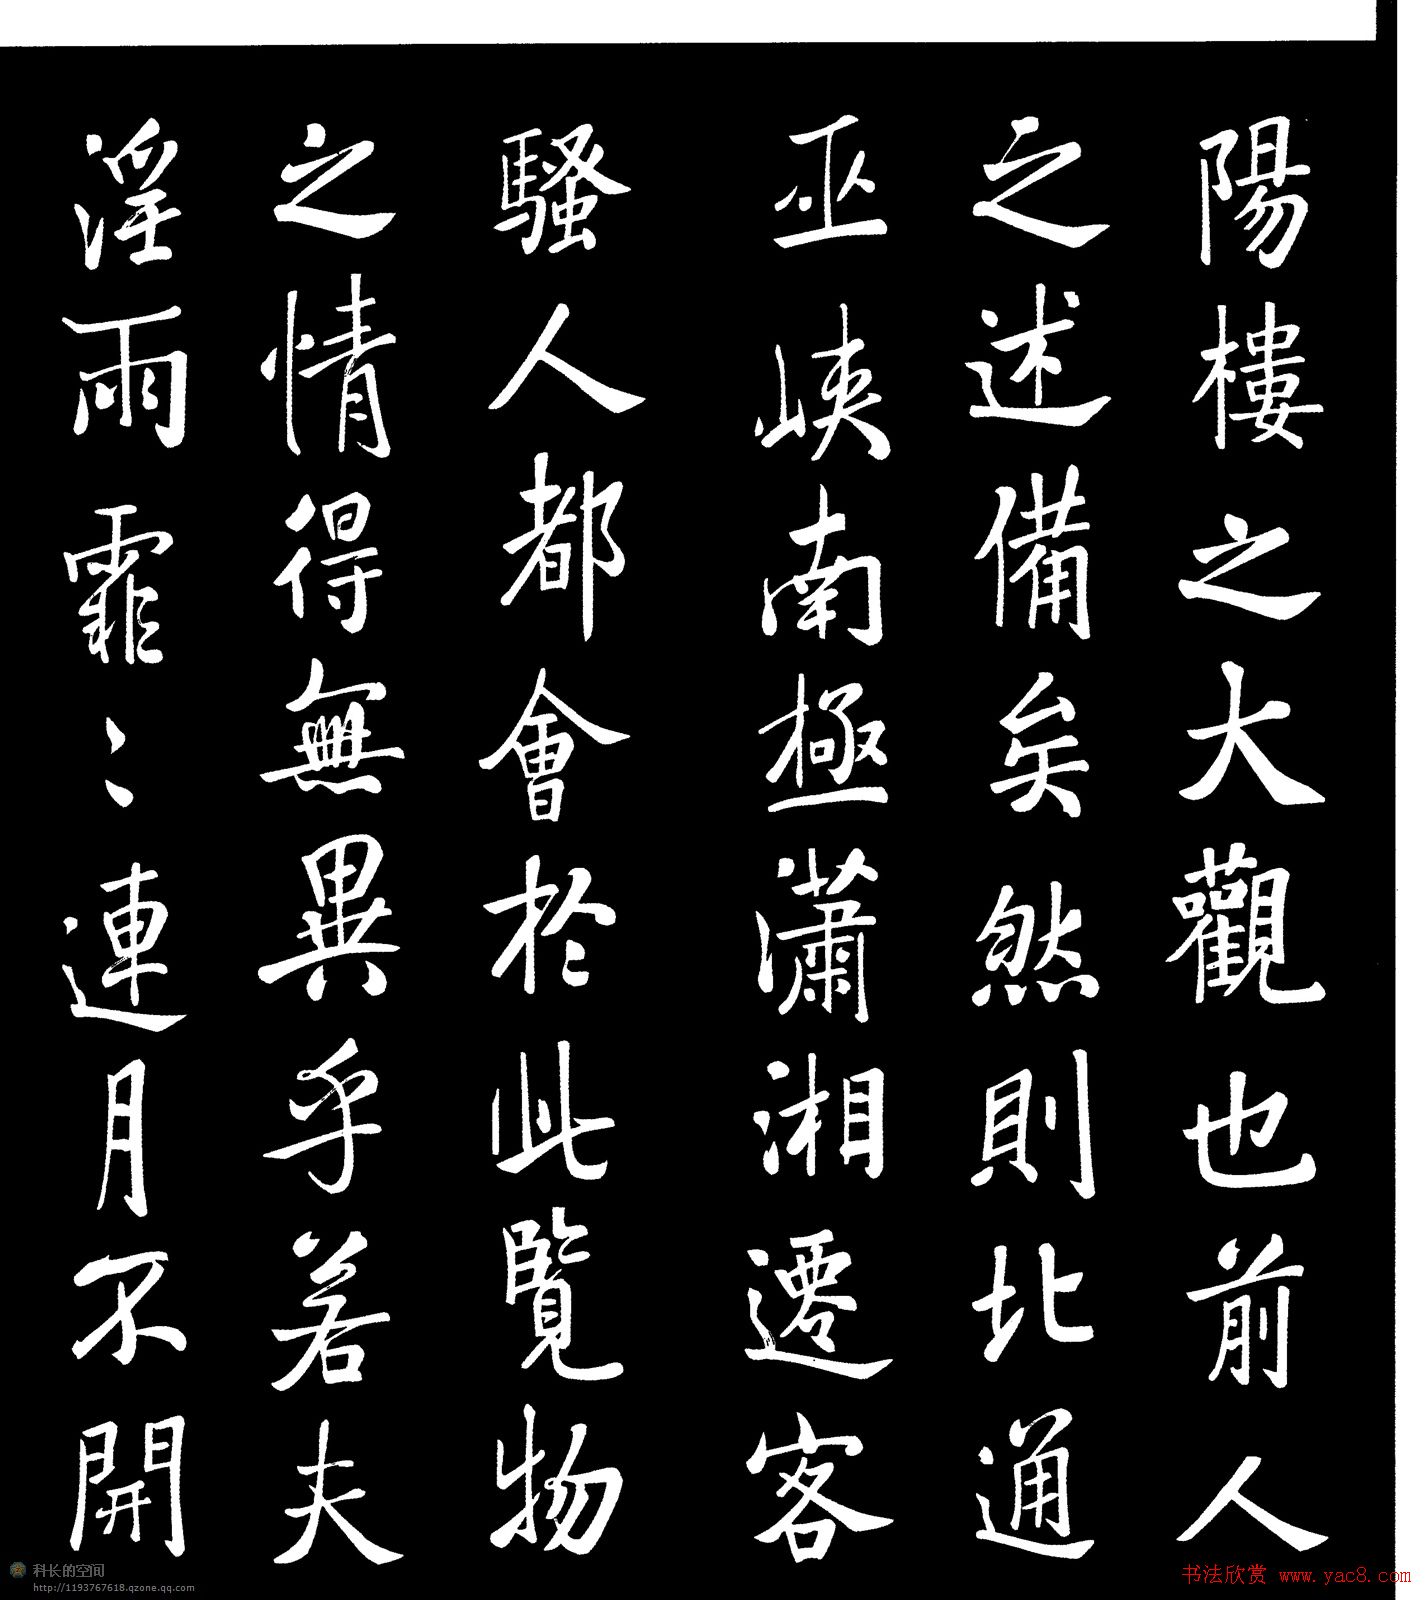 陽樓之大觀也前人
之述備矣然則北通
巫峽南極瀟湘遷客
騷人都會於此覽物
之情得無異乎若夫
淫雨霏〻連月不開
科长的空间
http://1193767618.qzone.qq.com
书法欣赏 www.yac8.com